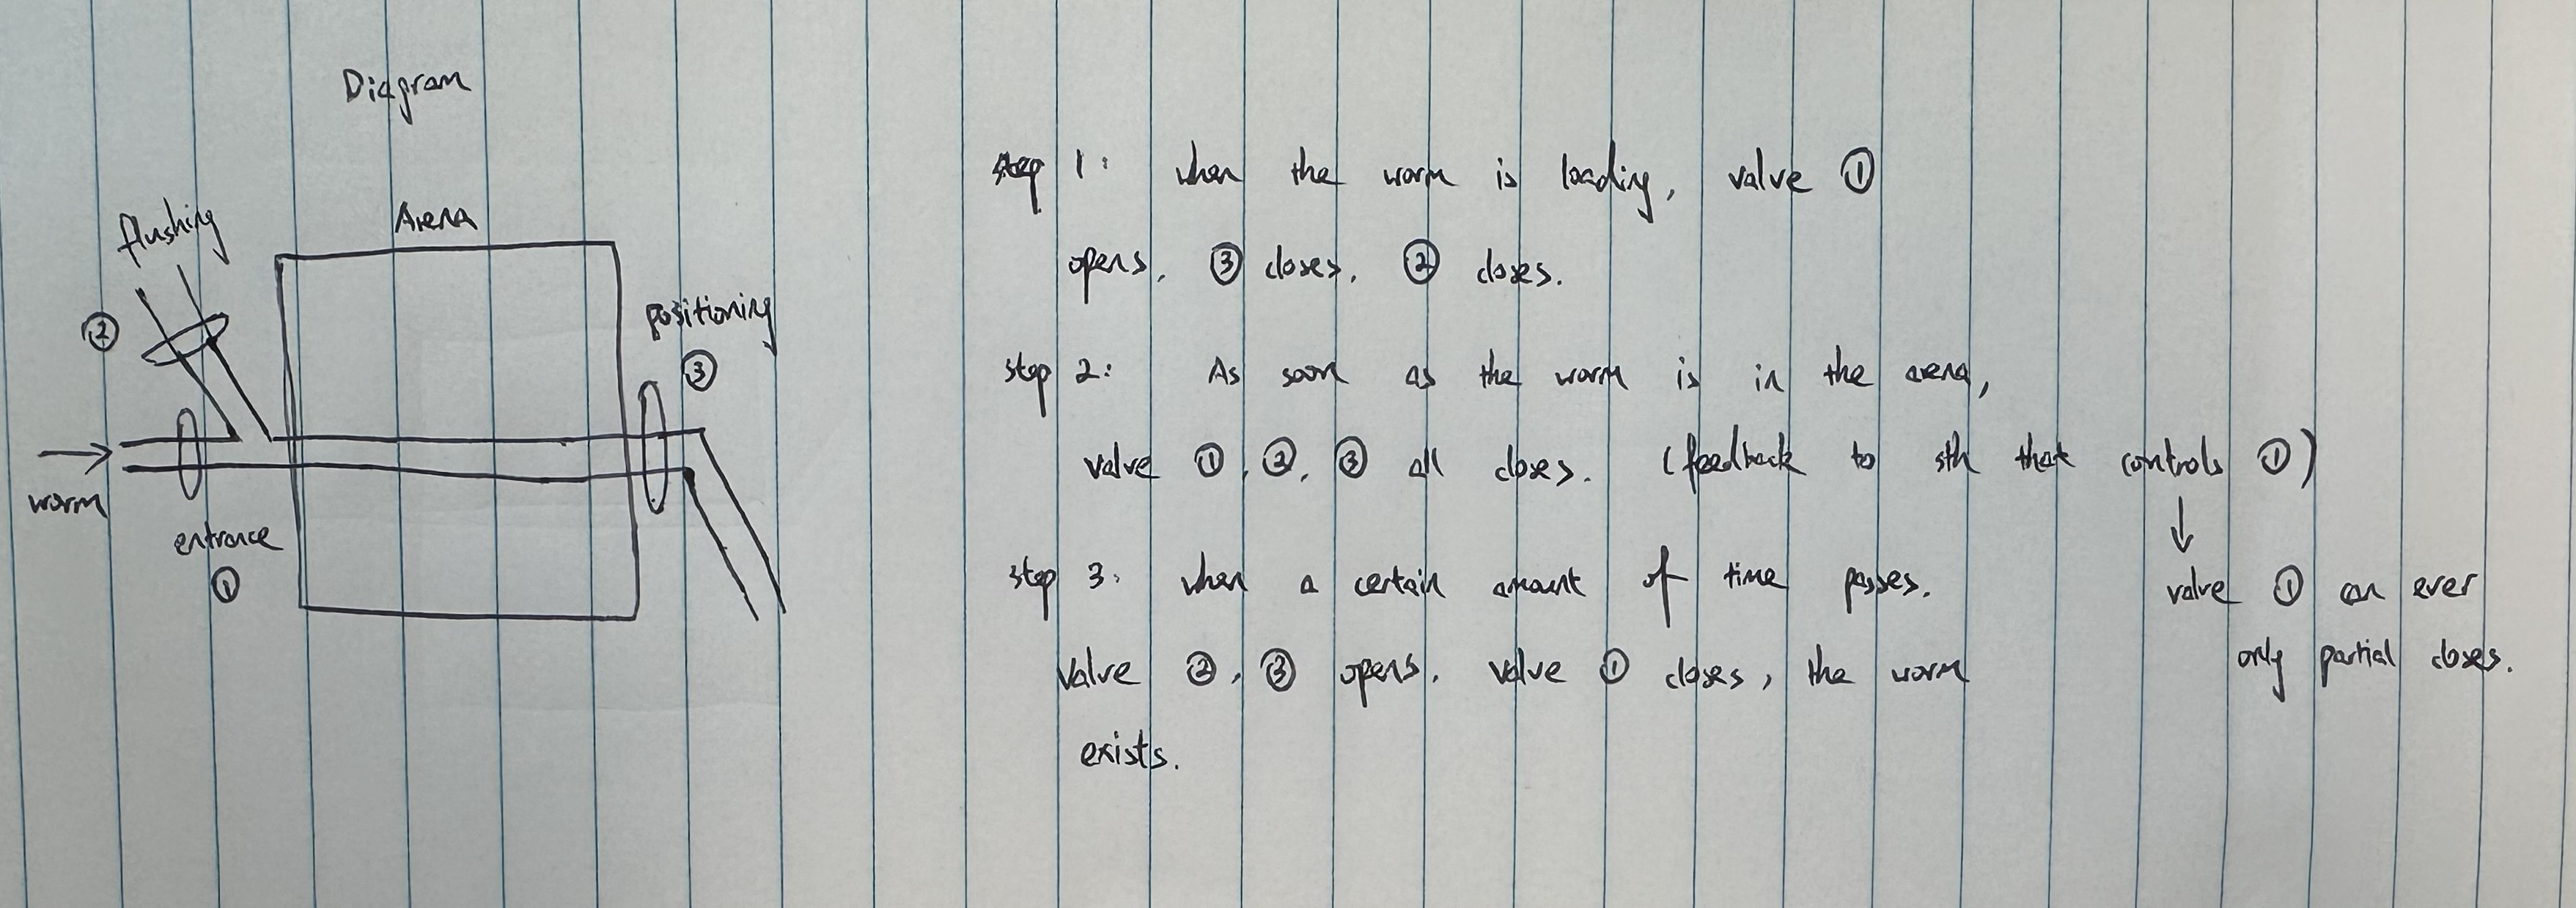 Diagram
Arena
flushing
②
positioning
③
worm
entrance
①
step 1: when the worm is loading, valve ①
opens, ③ closes, ② closes.
step 2: As soon as the worm is in the arena,
valve ①, ②, ③ all closes. (feedback to sth that controls ①)
valve ① can ever
only partial closes.
step 3: when a certain amount of time passes.
valve ②, ③ opens, valve ① closes, the worm
exists.